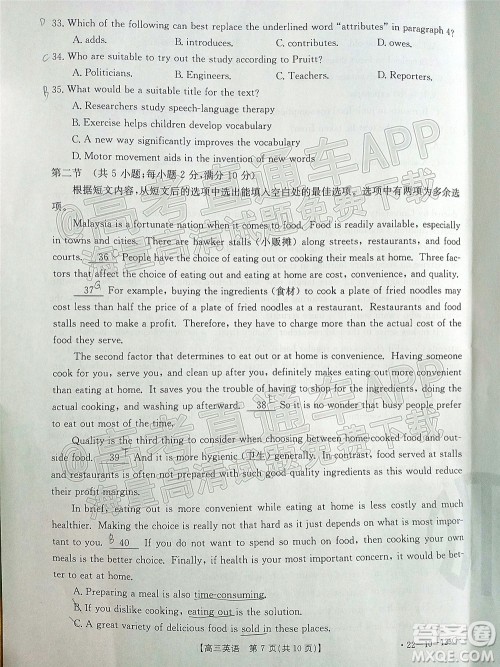 D 33. Which of the following can best replace the underlined word "attributes" in paragraph 4?
A. adds. B. introduces. C. contributes. D. owes.
C 34. Who are suitable to try out the study according to Pruitt?
A. Politicians. B. Engineers. C. Teachers. D. Reporters.
B 35. What would be a suitable title for the text?
A. Researchers study speech-language therapy
B. Exercise helps children develop vocabulary
C. A new way significantly improves the vocabulary
D. Motor movement aids in the invention of new words
第二节 (共 5 小题;每小题 2 分,满分 10 分)
根据短文内容,从短文后的选项中选出能填入空白处的最佳选项。选项中有两项为多余选
项。
Malaysia is a fortunate nation when it comes to food. Food is readily available, especially
in towns and cities. There are hawker stalls (小贩摊) along streets, restaurants, and food
courts. 36 People have the choice of eating out or cooking their own meals. Three fac-
tors that affect the choice of eating out and eating at home are cost, convenience, and quality.
37 G For example, buying the ingredients (食材) to cook a plate of fried noodles may
cost less than half the price of a plate of fried noodles at a restaurant. Restaurants and food
stalls have other overheads. Therefore they have to charge more than the actual cost of the
food they serve.
The second factor that determines to eat out or at home is convenience. Having someone
cook for you, serve you, and clean up after you, definitely makes eating out more convenient
than eating at home. It saves you the trouble of having to shop for the ingredients, doing the
actual cooking, and washing up afterward. 38 So it is no wonder that most busy people
prefer to eat out.
Quality is the third thing to consider when choosing between home-cooked food and out-
side food. 39 And it is more hygienic (卫生) generally. In contrast, food served at stalls
and restaurants is usually not made with good quality ingredients as this would further reduce
their profit margins.
In brief, eating out is more convenient while eating at home is less costly and much
healthier. Making the choice is not as hard as it appears to be as it just depends on what is im-
portant to you. 40 If you do not want to spend too much on food, then cooking your meals
is the better choice. Finally, if you want to be healthy, you would be better off eating at
home.
A. Preparing a meal is also time-consuming.
B. If you dislike cooking, eating out is the solution.
C. A great variety of delicious food is sold in shops and
【高三英语 第 7 页(共 10 页)】